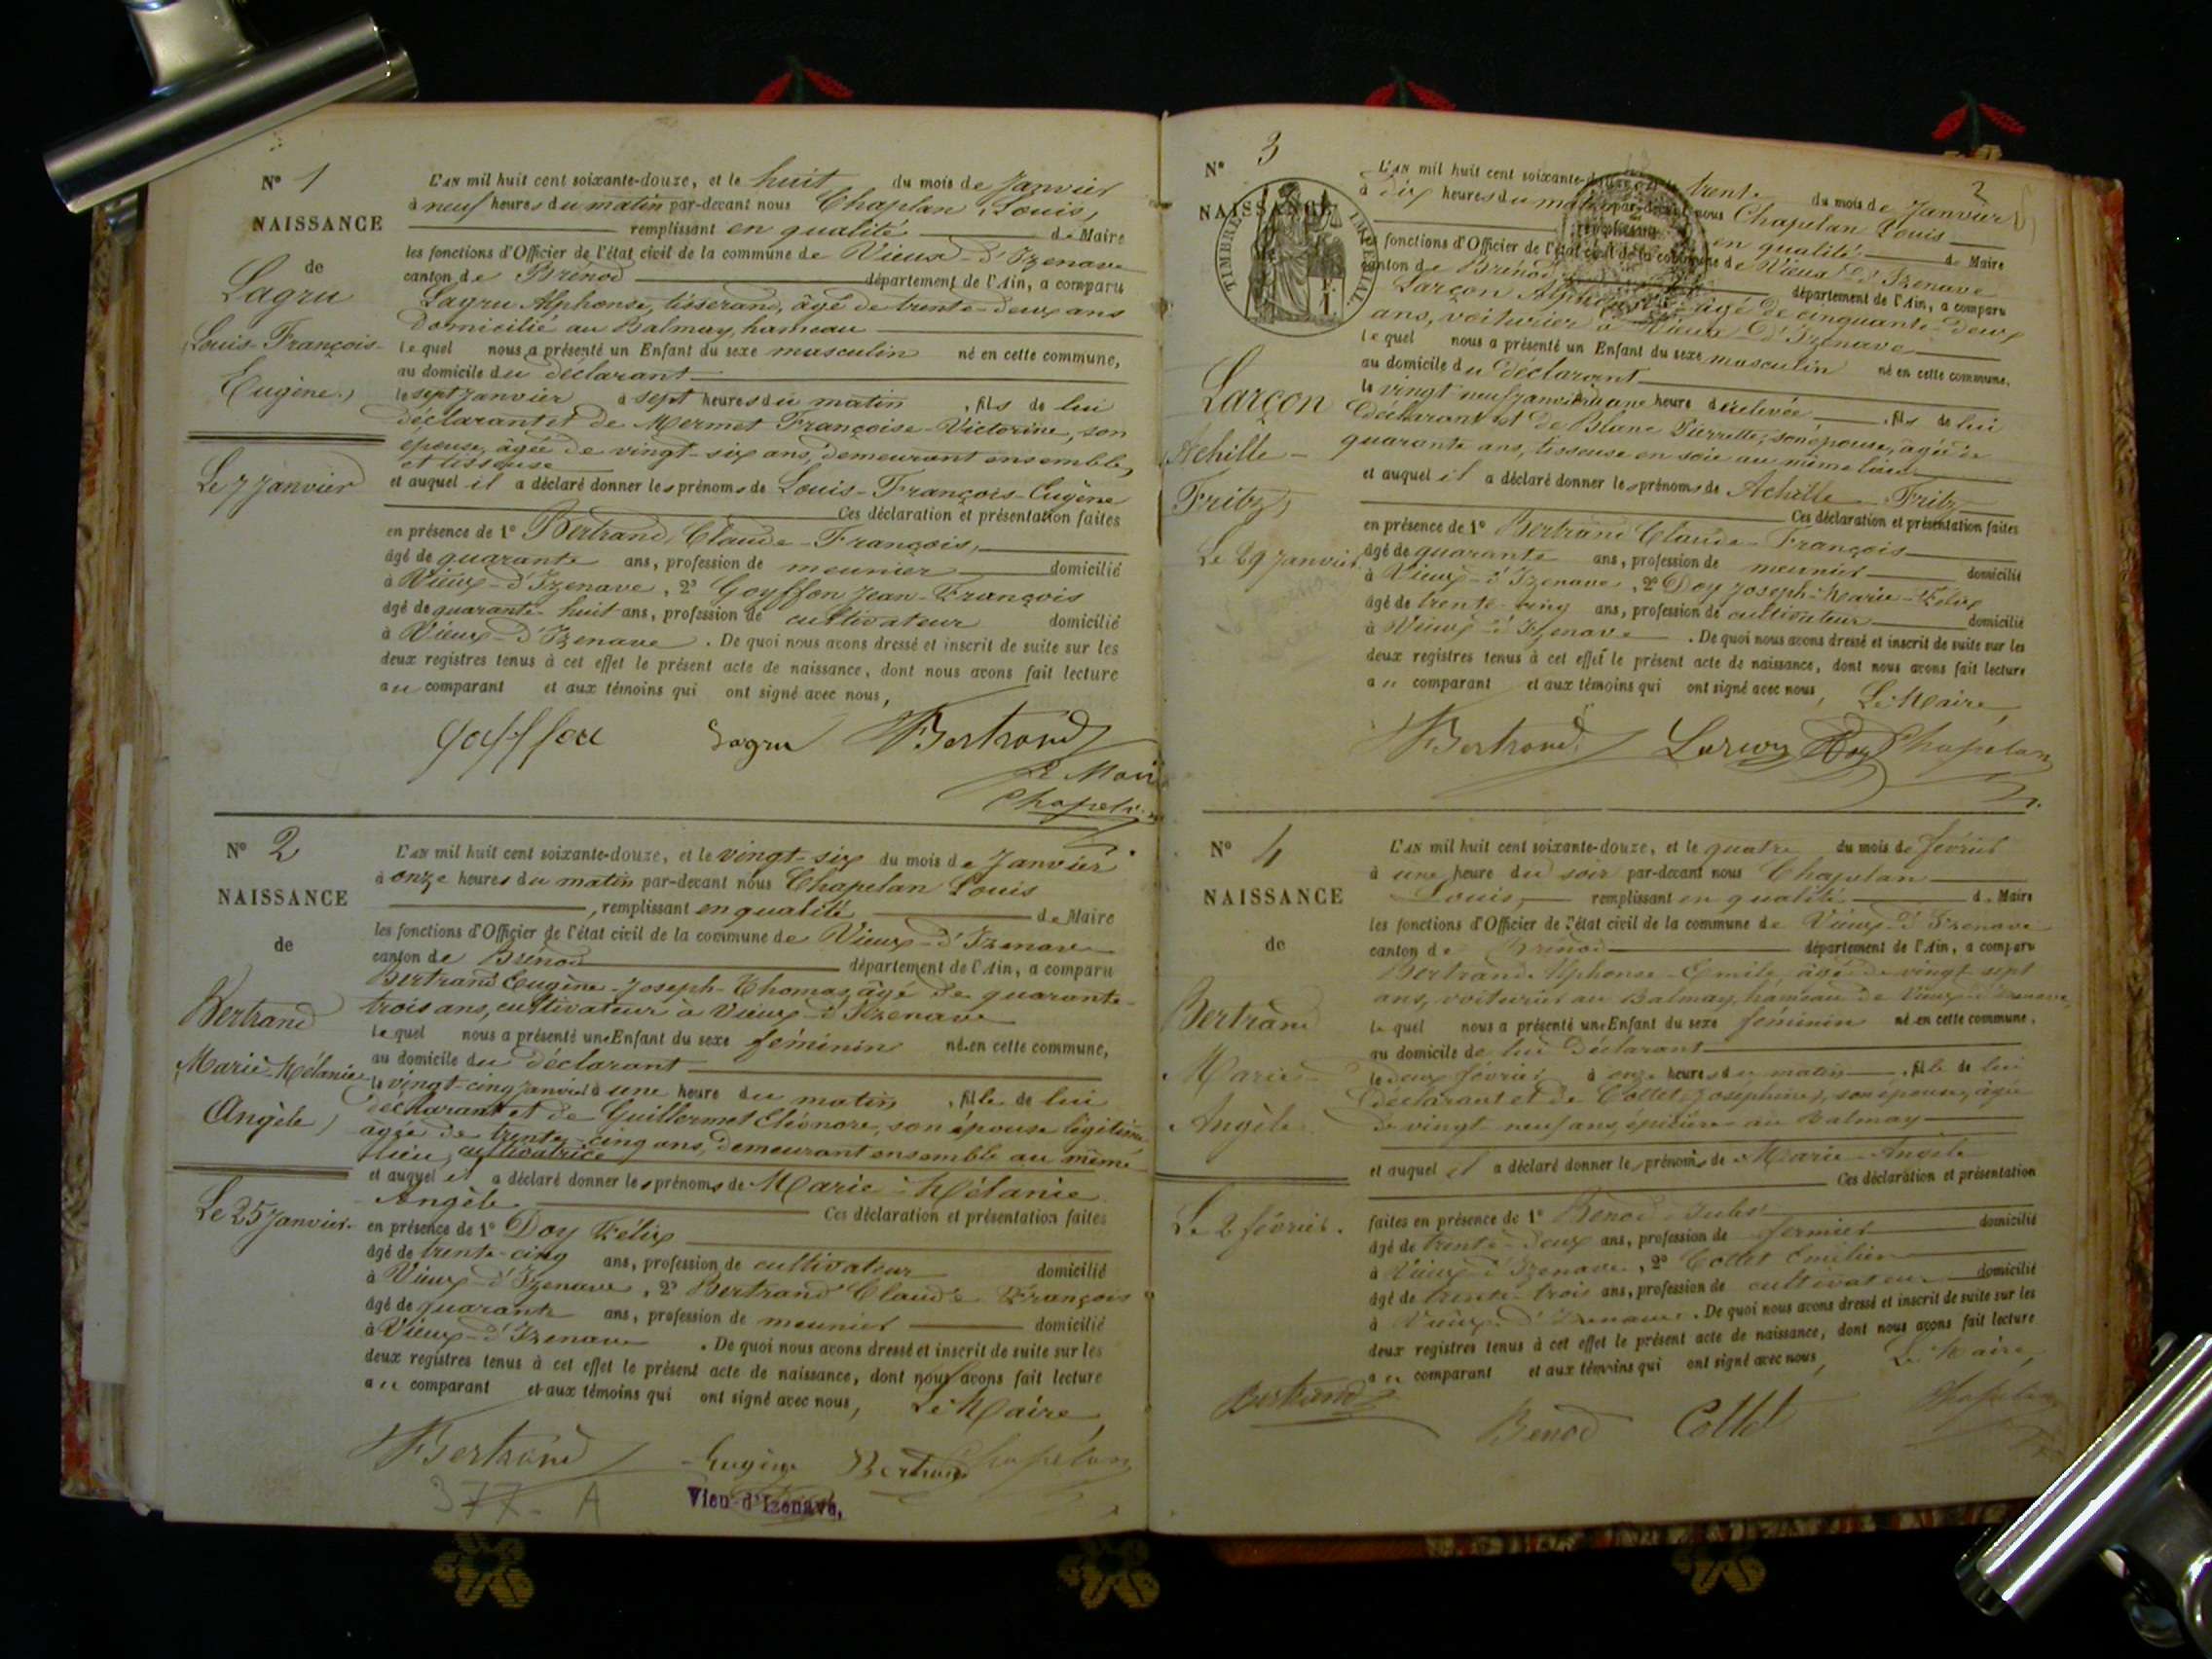 N° 1
NAISSANCE
de
Lagru
Louis-François-
Eugène
Le 7 Janvier
L'AN mil huit cent soixante-douze, et le huit du mois de Janvier
à neuf heures du matin par-devant nous Chapelan, Louis,
remplissant en qualité de Maire
les fonctions d'Officier de l'état civil de la commune de Vieux-d'Izenave
canton de Brénod département de l'Ain, a comparu
Lagru Alphonse, tisserand, âgé de trente-deux ans
domicilié au Balmay, hameau
lequel nous a présenté un Enfant du sexe masculin né en cette commune,
au domicile du déclarant
le sept janvier à sept heures du matin, fils de lui
déclarant et de Mermet Françoise-Victorine, son
épouse, âgée de vingt-six ans, demeurant ensemble,
et tisseuse
et auquel il a déclaré donner les prénoms de Louis-François-Eugène
Ces déclaration et présentation faites
en présence de 1° Bertrand, Claude-François,
âgé de quarante ans, profession de meunier domicilié
à Vieux-d'Izenave, 2° Goyffon Jean-François
âgé de quarante-huit ans, profession de cultivateur domicilié
à Vieux-d'Izenave. De quoi nous avons dressé et inscrit de suite sur les
deux registres tenus à cet effet le présent acte de naissance, dont nous avons fait lecture
au comparant et aux témoins qui ont signé avec nous,
Goyffon Lagru Bertrand
Le Mair
Chapelan
N° 2
NAISSANCE
de
Bertrand
Marie-Mélanie
Angèle
Le 25 Janvier.
L'AN mil huit cent soixante-douze, et le vingt-six du mois de Janvier
à onze heures du matin par-devant nous Chapelan Louis
, remplissant en qualité de Maire
les fonctions d'Officier de l'état civil de la commune de Vieux-d'Izenave
canton de Brénod département de l'Ain, a comparu
Bertrand Eugène-Joseph-Thomas, âgé de quarante-
trois ans, cultivateur à Vieux-d'Izenave
lequel nous a présenté une Enfant du sexe féminin née en cette commune,
au domicile du déclarant
le vingt-cinq janvier à une heure du matin, fille de lui
déclarant et de Guillermet Eléonore, son épouse légitime
âgée de trente-cinq ans, demeurant ensemble au même
lieu, cultivatrice
et auquel il a déclaré donner les prénoms de Marie-Mélanie
Angèle Ces déclaration et présentation faites
en présence de 1° Doy Félix
âgé de trente-cinq ans, profession de cultivateur domicilié
à Vieux-d'Izenave, 2° Bertrand Claude François
âgé de quarante ans, profession de meunier domicilié
à Vieux-d'Izenave. De quoi nous avons dressé et inscrit de suite sur les
deux registres tenus à cet effet le présent acte de naissance, dont nous avons fait lecture
au comparant et aux témoins qui ont signé avec nous, Le Maire,
Bertrand Eugène Bertrand Chapelan
377- A
Vieu-d'Izenave,
2
N° 3
NAISSANCE
TIMBRE IMPERIAL
Larçon
Achille-
Fritz
Le 29 Janvier
L'AN mil huit cent soixante-douze, et le trente du mois de Janvier
à dix heures du matin par-devant nous Chapelan Louis
remplissant en qualité de Maire
les fonctions d'Officier de l'état civil de la commune de Vieux-d'Izenave
canton de Brénod département de l'Ain, a comparu
Larçon Alphonse âgé de cinquante-deux
ans, voiturier à Vieux-d'Izenave
lequel nous a présenté un Enfant du sexe masculin né en cette commune,
au domicile du déclarant
le vingt neuf janvier à une heure de relevée, fils de lui
déclarant et de Blanc Pierrette, son épouse, âgée de
quarante ans, tisseuse en soie au même lieu
et auquel il a déclaré donner les prénoms de Achille Fritz
Ces déclaration et présentation faites
en présence de 1° Bertrand Claude-François
âgé de quarante ans, profession de meunier domicilié
à Vieux-d'Izenave, 2° Doy Joseph-Marie-Félix
âgé de trente-cinq ans, profession de cultivateur domicilié
à Vieux-d'Izenave. De quoi nous avons dressé et inscrit de suite sur les
deux registres tenus à cet effet le présent acte de naissance, dont nous avons fait lecture
au comparant et aux témoins qui ont signé avec nous, Le Maire,
Bertrand Larçon Doy Chapelan
N° 4
NAISSANCE
de
Bertrand
Marie-
Angèle
Le 2 février.
L'AN mil huit cent soixante-douze, et le quatre du mois de février
à une heure du soir par-devant nous Chapelan
Louis, remplissant en qualité de Maire
les fonctions d'Officier de l'état civil de la commune de Vieux-d'Izenave
canton de Brénod département de l'Ain, a comparu
Bertrand Alphonse-Emile, âgé de vingt-sept
ans, voiturier au Balmay, hameau de Vieux-d'Izenave,
lequel nous a présenté une Enfant du sexe féminin née en cette commune,
au domicile de lui déclarant
le deux février à onze heures du matin, fille de lui
déclarant et de Collet Joséphine, son épouse, âgée
de vingt-neuf ans, épicière au Balmay
et auquel il a déclaré donner les prénoms de Marie-Angèle
Ces déclaration et présentation
faites en présence de 1° Benod Jules
âgé de trente-deux ans, profession de fermier domicilié
à Vieux-d'Izenave, 2° Collet Emélien
âgé de trente-trois ans, profession de cultivateur domicilié
à Vieux-d'Izenave. De quoi nous avons dressé et inscrit de suite sur les
deux registres tenus à cet effet le présent acte de naissance, dont nous avons fait lecture
au comparant et aux témoins qui ont signé avec nous, Le Maire,
Bertrand Benod Collet Chapelan